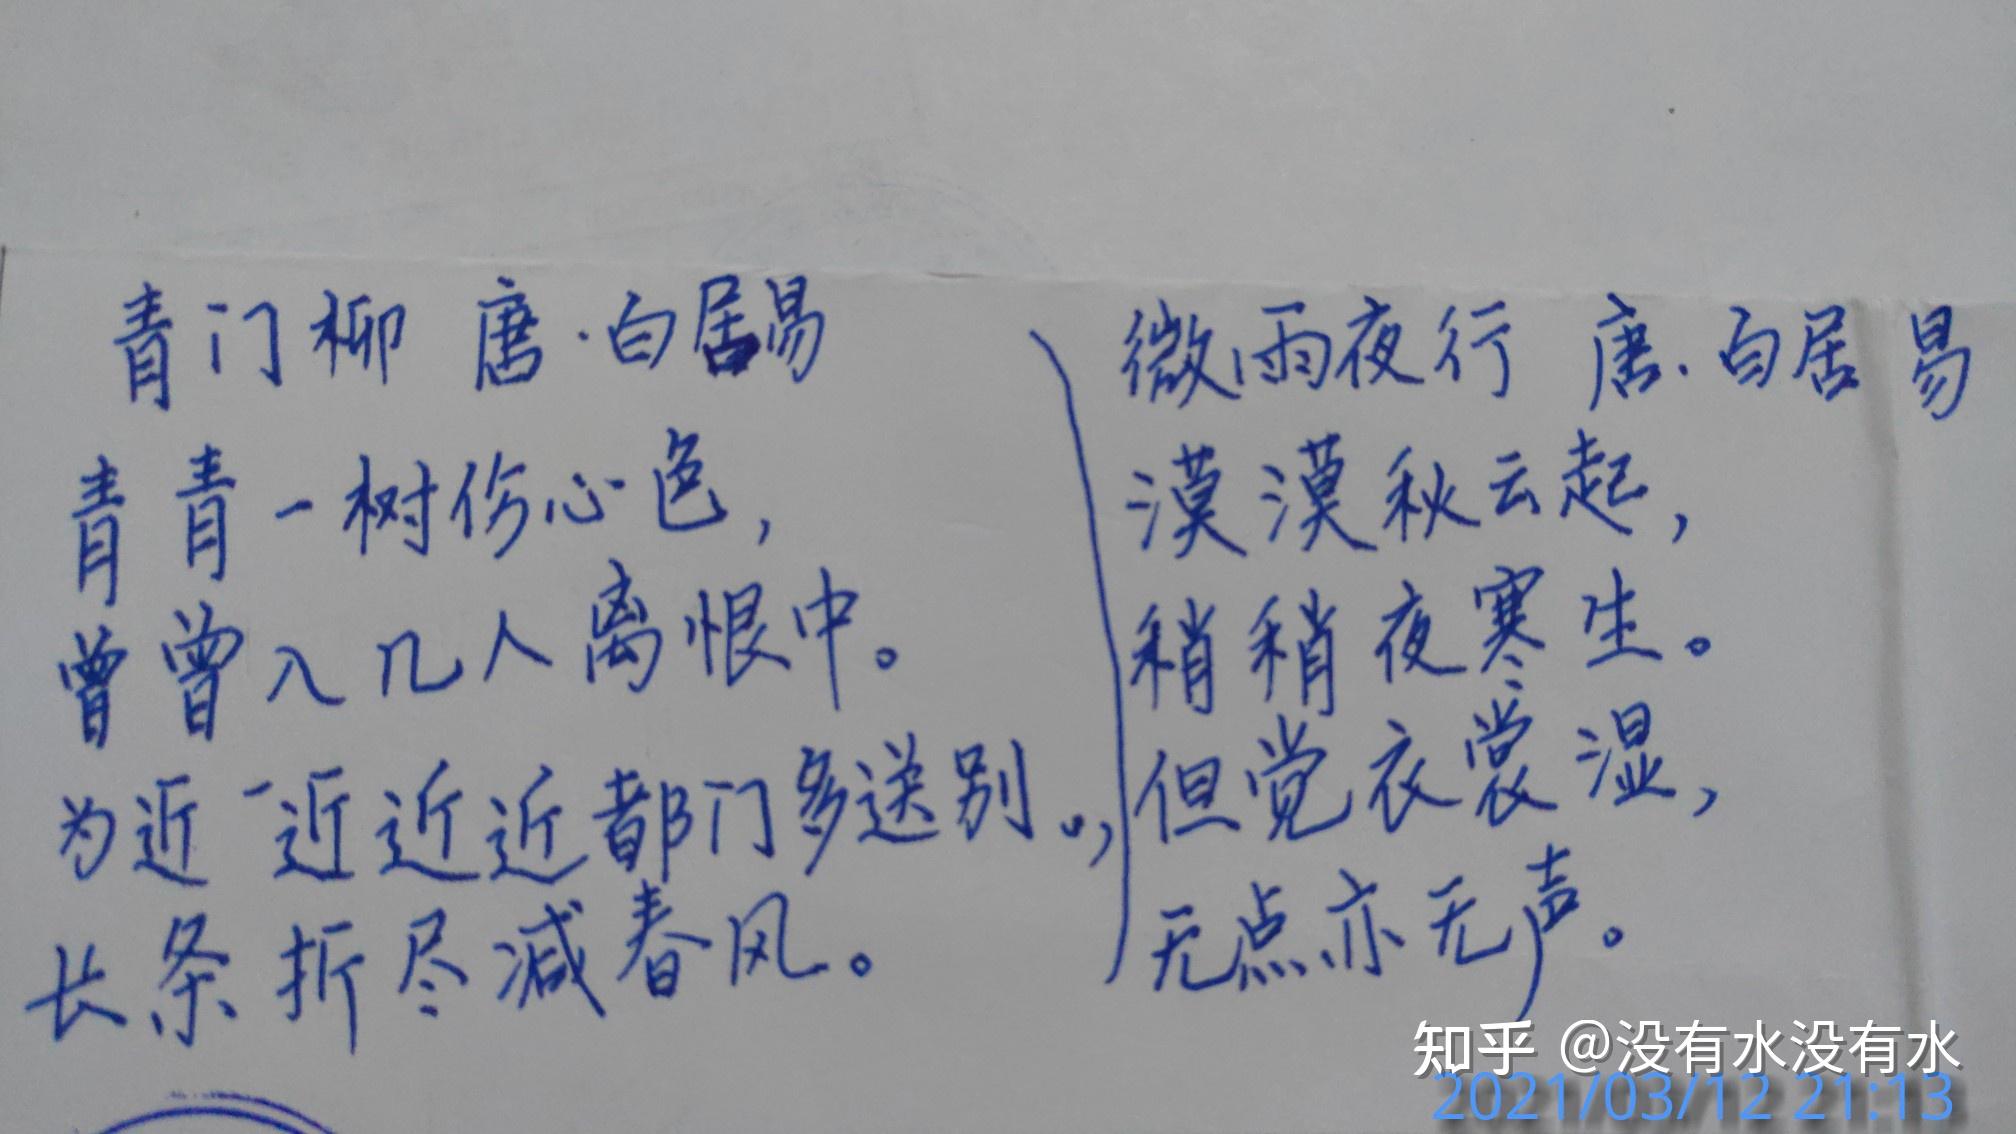 青门柳 唐·白居易
青青一树伤心色，
曾曾入几人离恨中。
为近一近近近都门多送别。，
长条折尽减春风。
微雨夜行 唐·白居易
漠漠秋云起，
稍稍夜寒生。
但觉衣裳湿，
无点亦无声。
知乎 @没有水没有水
2021/03/12 21:13